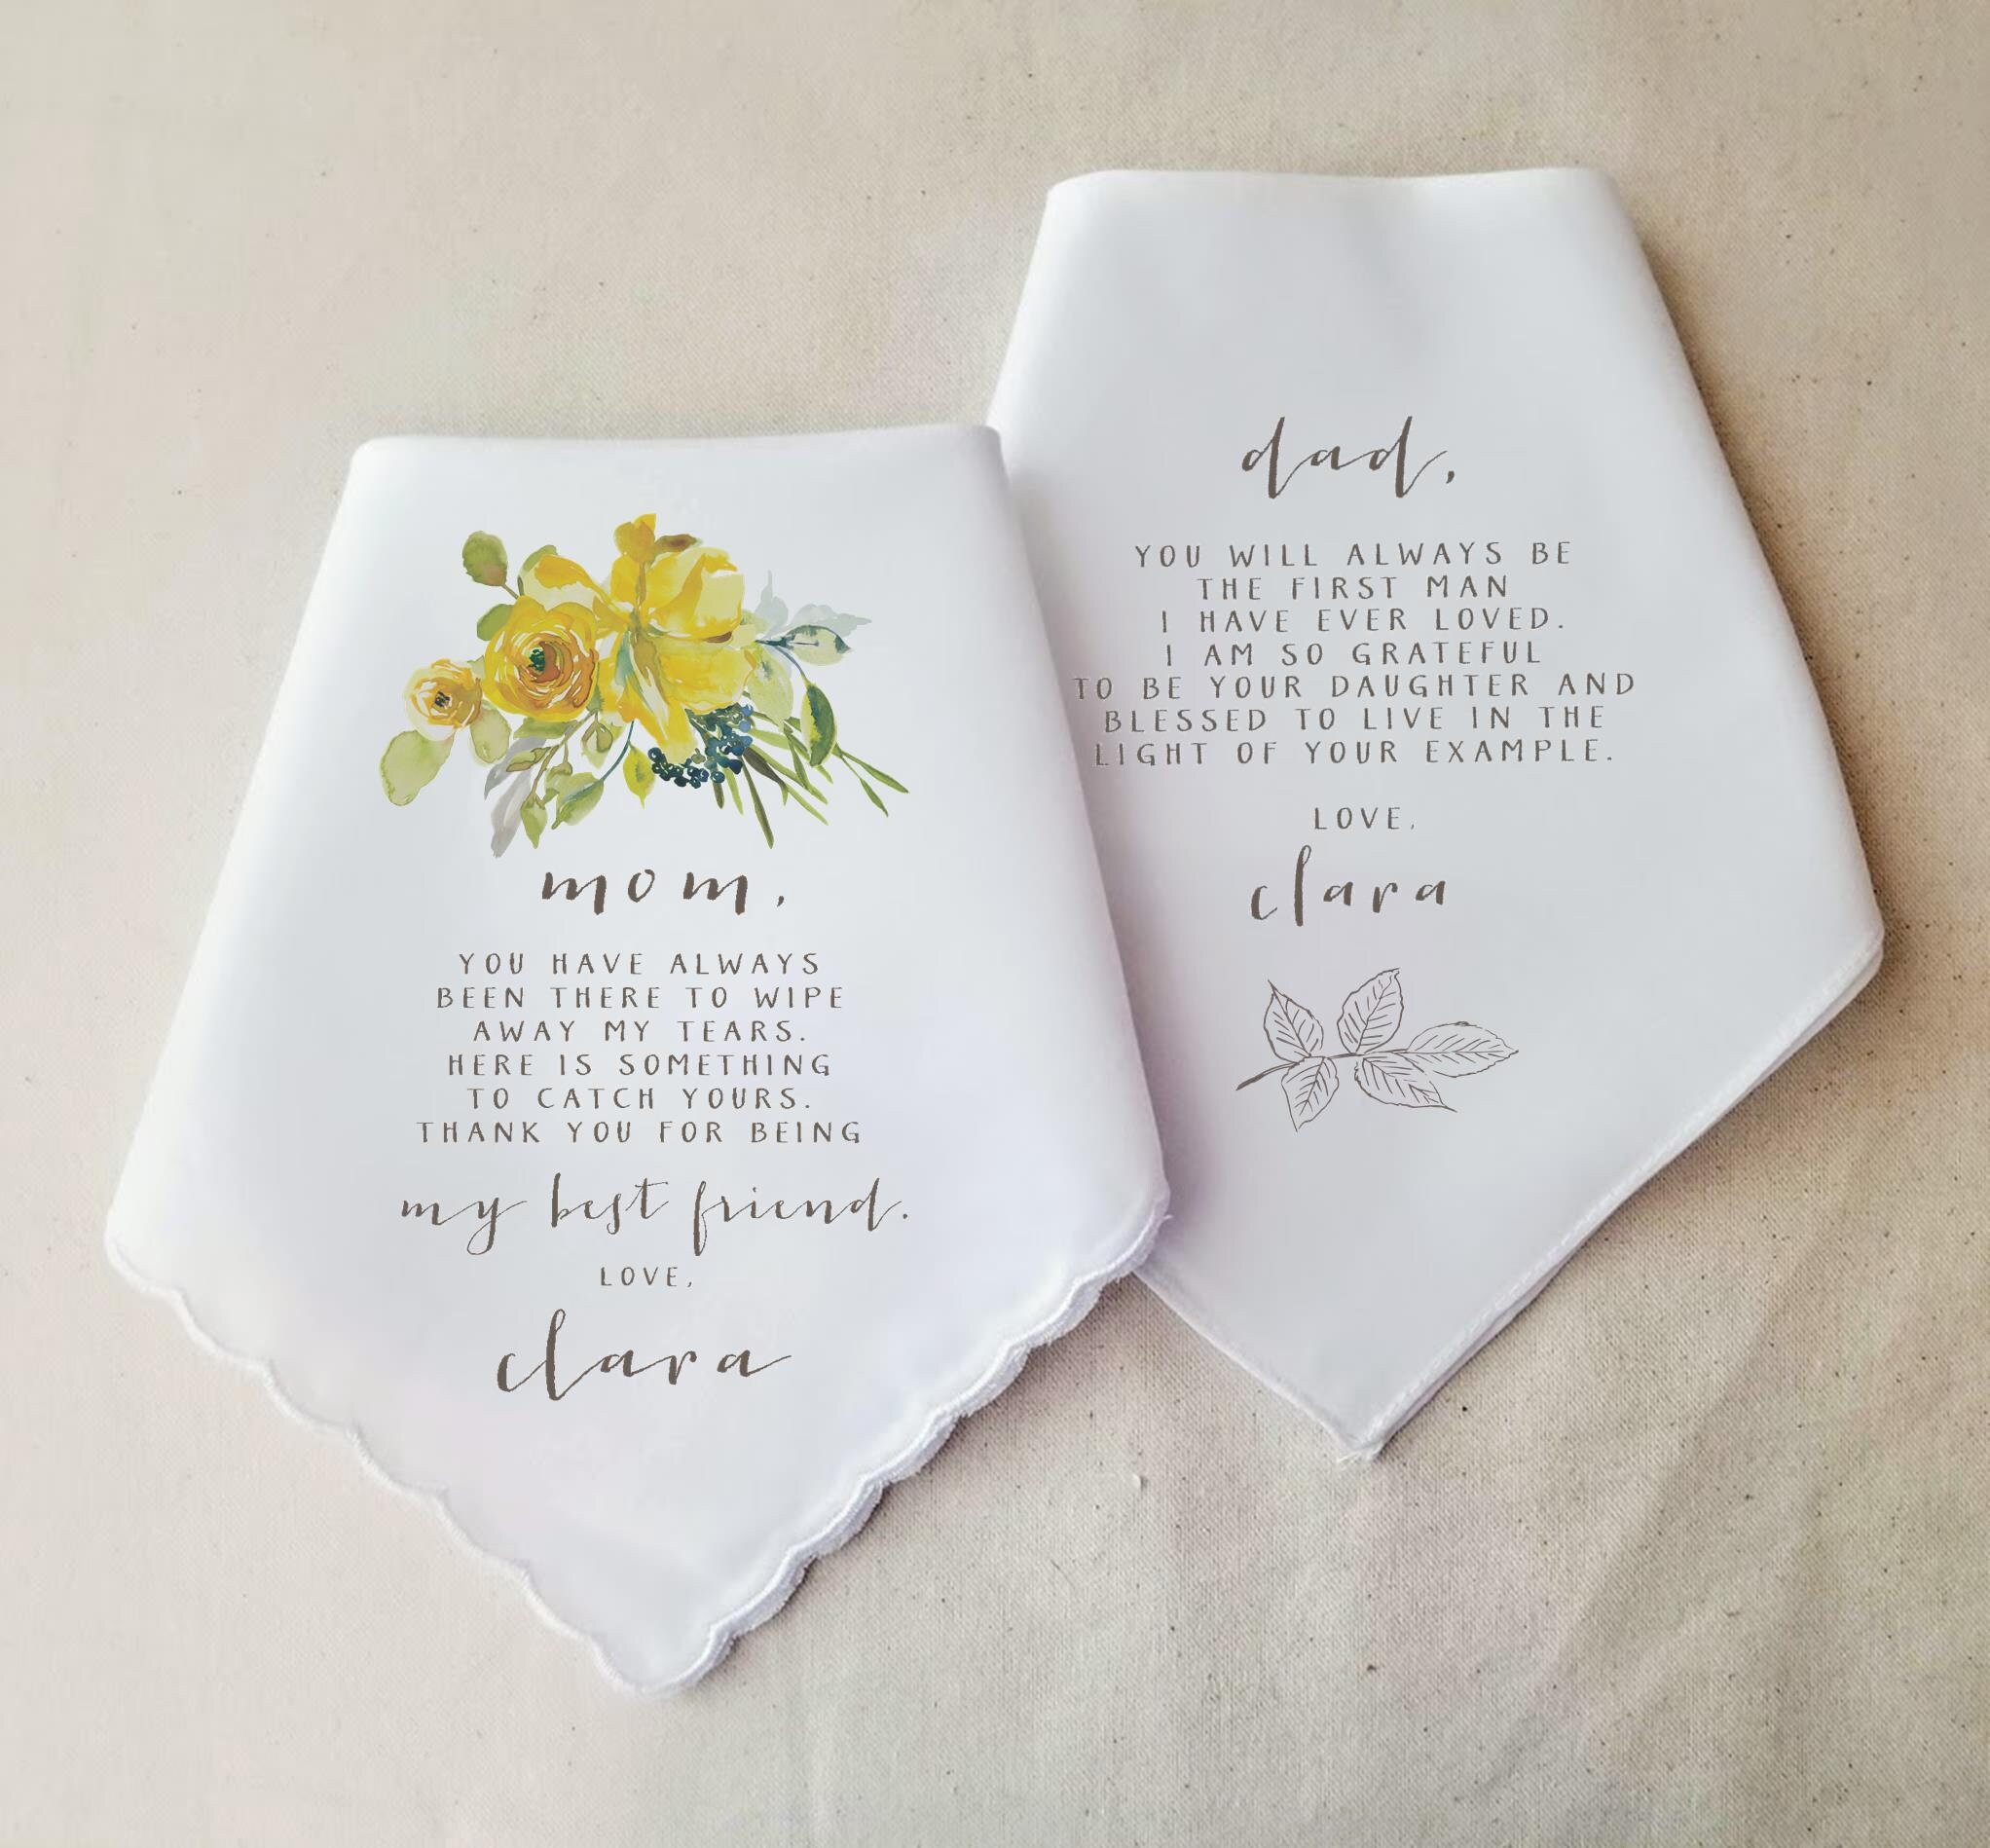 mom,
YOU HAVE ALWAYS
BEEN THERE TO WIPE
AWAY MY TEARS.
HERE IS SOMETHING
TO CATCH YOURS.
THANK YOU FOR BEING
my best friend.
LOVE,
clara
dad,
YOU WILL ALWAYS BE
THE FIRST MAN
I HAVE EVER LOVED.
I AM SO GRATEFUL
TO BE YOUR DAUGHTER AND
BLESSED TO LIVE IN THE
LIGHT OF YOUR EXAMPLE.
LOVE,
clara